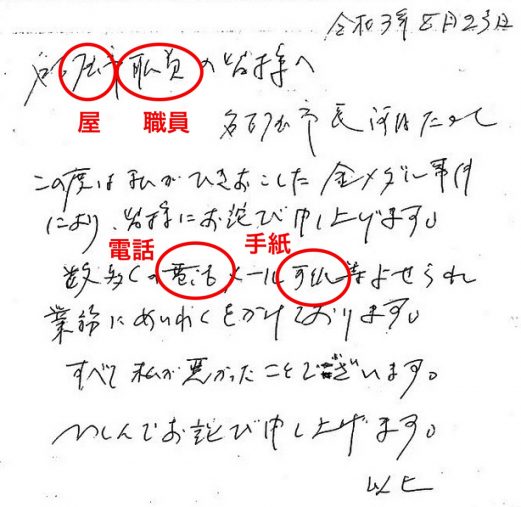 令和3年8月23日
名古屋市職員の皆様へ
屋 職員
名古屋市長 河村たかし
この度は私がひきおこした金メダル事件
により、皆様にお詫び申し上げます。
電話 手紙
数多くの電話、メール、手紙等よせられ
業務にめいわくをかけております。
すべて私が悪かったことでございます。
つつしんでお詫び申し上げます。
以上